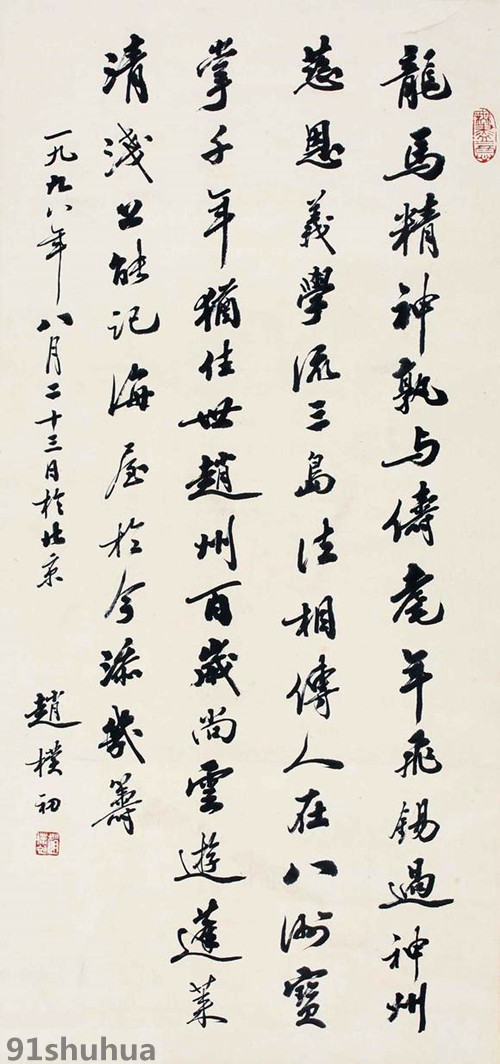 龍馬精神孰与儔耄年飛錫過神州
慈恩義學流三島法相傳人在八洲寶
掌千年猶住世趙州百歲尚雲遊蓬萊
清淺公能記海屋於今添幾籌
一九九八年八月二十三日於北京
趙樸初
91shuhua